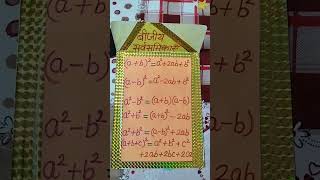 बीजीय
सर्वसमिकाएँ
(a+b)²=a²+2ab+b²
(a-b)²=a²-2ab+b²
a²-b²=(a+b)(a-b)
a²+b²=(a+b)²-2ab
a²+b²=(a-b)²+2ab
(a+b+c)²=a²+b²+c²
+2ab+2bc+2ca